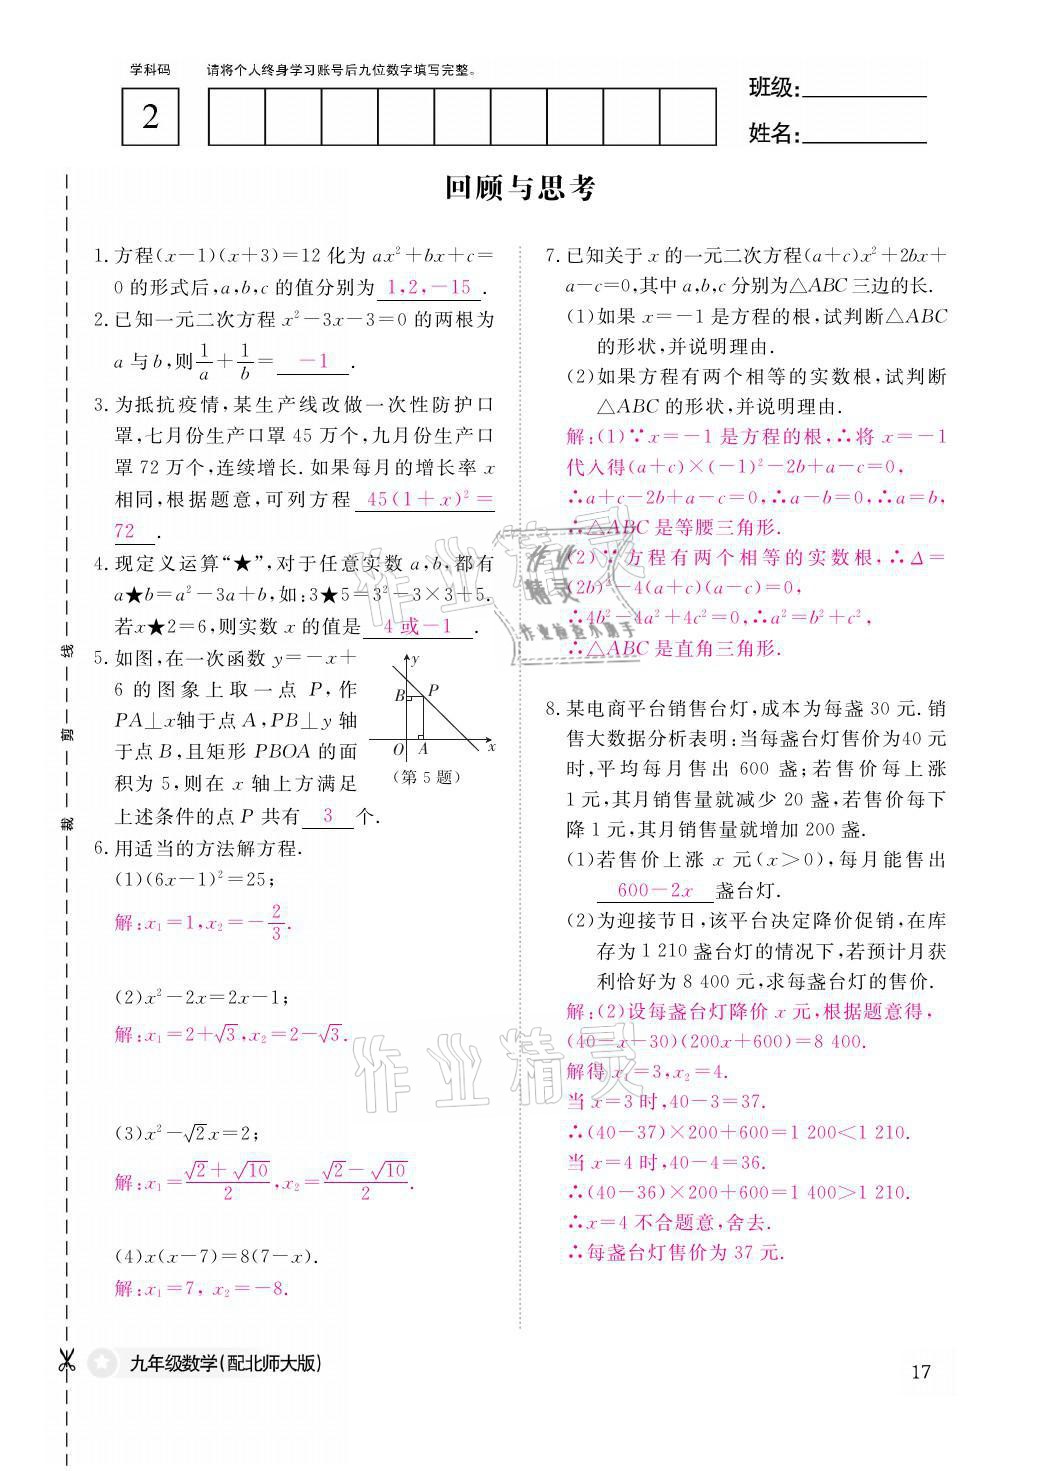 学科码
请将个人终身学习账号后九位数字填写完整。
2
班级:
姓名:
回顾与思考
1.方程(x-1)(x+3)=12 化为 ax²+bx+c=
0 的形式后,a,b,c 的值分别为 1,2,-15 .
2.已知一元二次方程 x²-3x-3=0 的两根为
a 与 b,则 1/a + 1/b = -1 .
3.为抵抗疫情,某生产线改做一次性防护口
罩,七月份生产口罩 45 万个,九月份生产口
罩 72 万个,连续增长. 如果每月的增长率 x
相同,根据题意,可列方程 45(1+x)²=
72 .
4.现定义运算“★”,对于任意实数 a,b,都有
a★b=a²-3a+b,如:3★5=3²-3×3+5.
若x★2=6,则实数 x 的值是 4 或-1 .
5.如图,在一次函数 y=-x+
6 的图象上取一点 P,作
PA⊥x轴于点 A,PB⊥y 轴
于点 B,且矩形 PBOA 的面
积为 5,则在 x 轴上方满足
上述条件的点 P 共有 3 个.
y
B P
O A x
(第 5 题)
6.用适当的方法解方程.
(1)(6x-1)²=25;
解:x₁=1,x₂=-2/3.
(2)x²-2x=2x-1;
解:x₁=2+√3,x₂=2-√3.
(3)x²-√2x=2;
解:x₁=(√2+√10)/2,x₂=(√2-√10)/2.
(4)x(x-7)=8(7-x).
解:x₁=7, x₂=-8.
7.已知关于 x 的一元二次方程(a+c)x²+2bx+
a-c=0,其中 a,b,c 分别为△ABC 三边的长.
(1)如果 x=-1 是方程的根,试判断△ABC
的形状,并说明理由.
(2)如果方程有两个相等的实数根,试判断
△ABC 的形状,并说明理由.
解:(1)∵x=-1 是方程的根,∴将 x=-1
代入得(a+c)×(-1)²-2b+a-c=0,
∴a+c-2b+a-c=0,∴a-b=0,∴a=b,
∴△ABC 是等腰三角形.
(2)∵方程有两个相等的实数根,∴Δ=
(2b)²-4(a+c)(a-c)=0,
∴4b²-4a²+4c²=0,∴a²=b²+c²,
∴△ABC 是直角三角形.
8.某电商平台销售台灯,成本为每盏 30 元. 销
售大数据分析表明:当每盏台灯售价为40 元
时,平均每月售出 600 盏;若售价每上涨
1元,其月销售量就减少 20 盏,若售价每下
降 1 元,其月销售量就增加 200 盏.
(1)若售价上涨 x 元(x>0),每月能售出
600-2x 盏台灯.
(2)为迎接节日,该平台决定降价促销,在库
存为 1 210 盏台灯的情况下,若预计月获
利恰好为 8 400 元,求每盏台灯的售价.
解:(2)设每盏台灯降价 x 元,根据题意得,
(40-x-30)(200x+600)=8 400.
解得 x₁=3,x₂=4.
当 x=3 时,40-3=37.
∴(40-37)×200+600=1 200<1 210.
当 x=4 时,40-4=36.
∴(40-36)×200+600=1 400>1 210.
∴x=4 不合题意,舍去.
∴每盏台灯售价为 37 元.
线
剪
裁
作业精灵
作业
精灵
作业检查小助手
作业精灵
九年级数学(配北师大版)
17